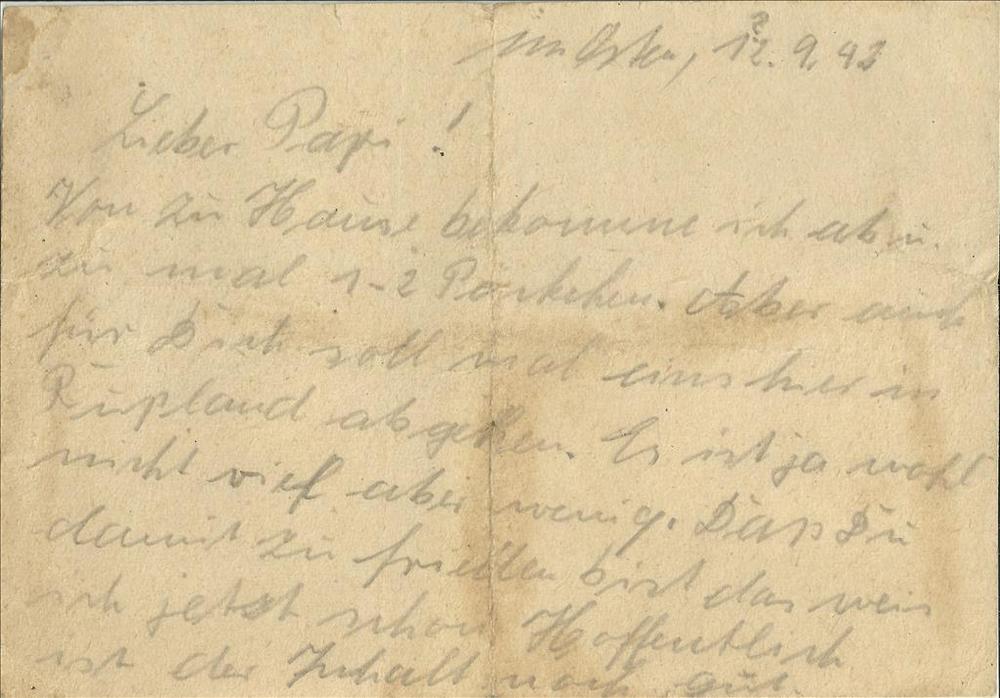 Im Osten, 12. 9. 43
Lieber Papi!
Von zu Hause bekomme ich ab u.
zu mal 1-2 Päckchen. Aber auch
für Dich soll mal eins hier in
Rußland abgehen. Es ist ja wohl
nicht viel aber wenig. Daß Du
damit zu frieden bist das weis
ich jetzt schon Hoffentlich
ist der Inhalt noch gut